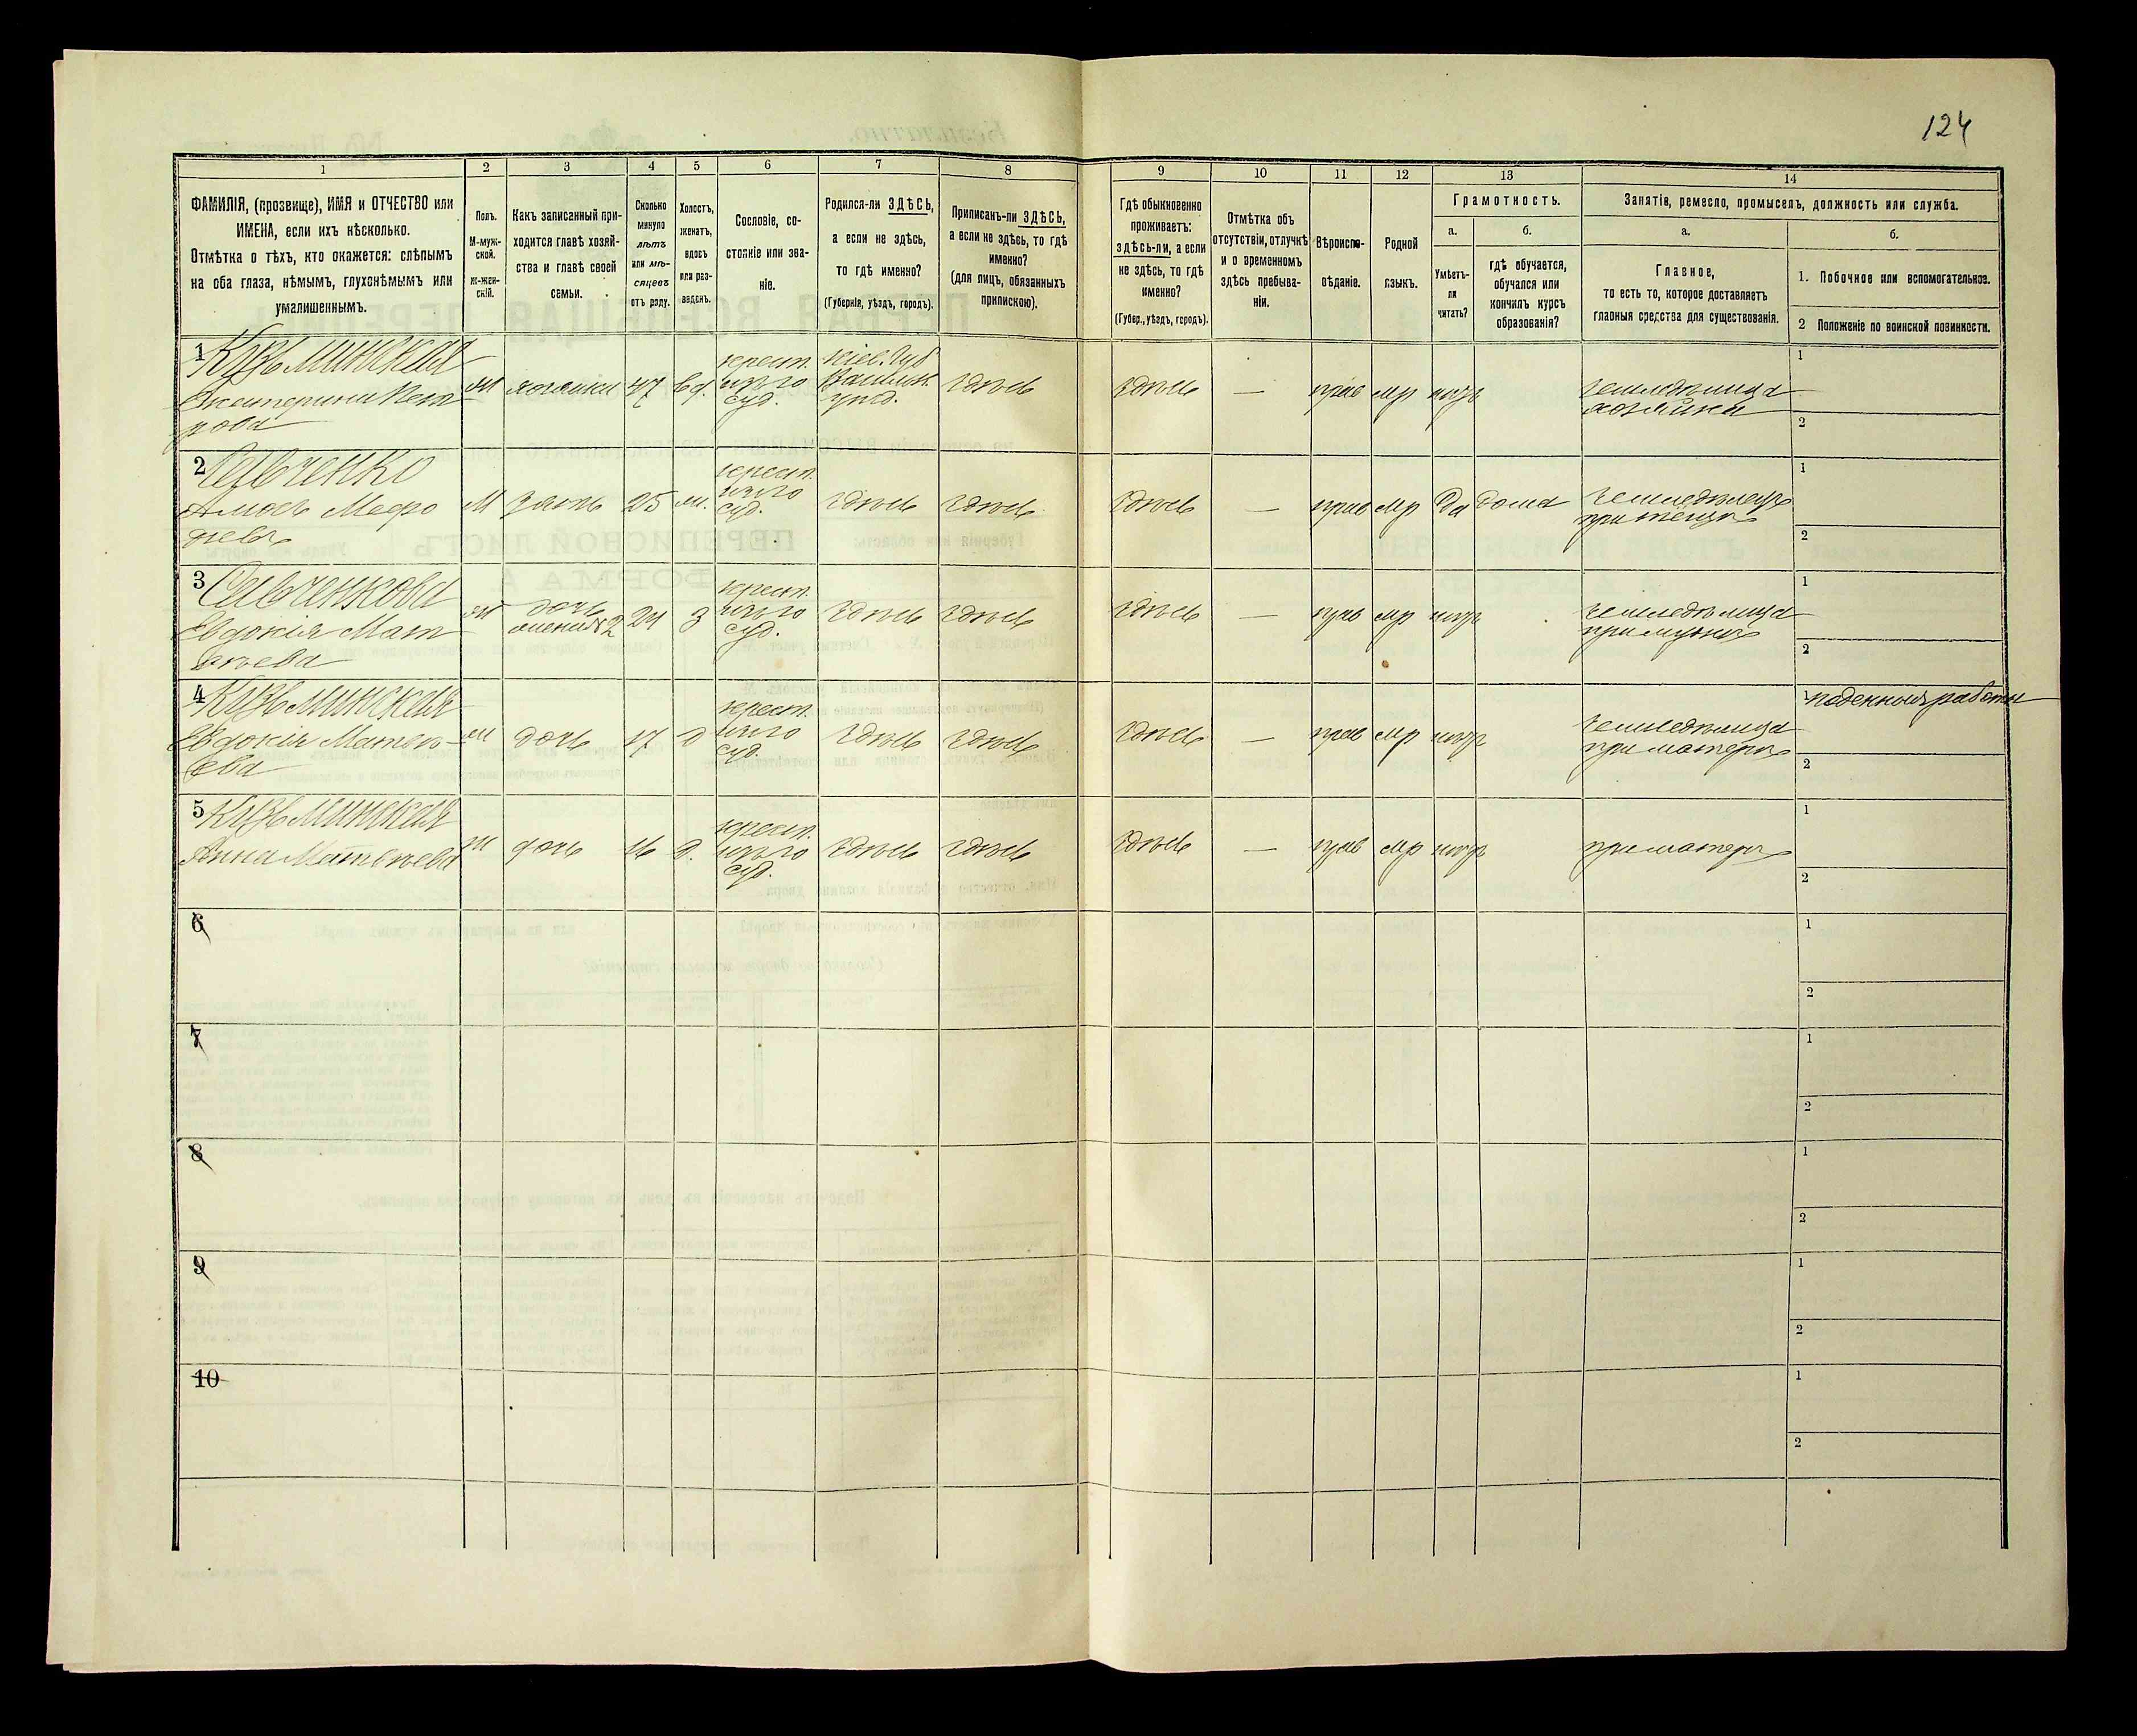 124
1 2 3 4 5 6 7 8 9 10 11 12 13 14
ФАМИЛІЯ, (прозвище), ИМЯ и ОТЧЕСТВО или
ИМЕНА, если ихъ нѣсколько.
Отмѣтка о тѣхъ, кто окажется: слѣпымъ
на оба глаза, нѣмымъ, глухонѣмымъ или
умалишеннымъ.
Полъ.
М-муж-
ской.
ж-жен-
скій.
Какъ записанный при-
ходится главѣ хозяй-
ства и главѣ своей
семьи.
Сколько
минуло
лѣтъ
или мѣ-
сяцевъ
отъ роду.
Холостъ,
женатъ,
вдовъ
или раз-
веденъ.
Сословіе, со-
стояніе или зва-
ніе.
Родился-ли ЗДѢСЬ,
а если не здѣсь,
то гдѣ именно?
(Губернія, уѣздъ, городъ).
Приписанъ-ли ЗДѢСЬ,
а если не здѣсь, то гдѣ
именно?
(для лицъ, обязанныхъ
припискою).
Гдѣ обыкновенно
проживаетъ:
здѣсь-ли, а если
не здѣсь, то гдѣ
именно?
(Губер., уѣздъ, городъ).
Отмѣтка объ
отсутствіи, отлучкѣ
и о временномъ
здѣсь пребыва-
ніи.
Вѣроиспо-
вѣданіе.
Родной
языкъ.
Грамотность.
а.
Умѣетъ-
ли
читать?
б.
гдѣ обучается,
обучался или
кончилъ курсъ
образованія?
Занятіе, ремесло, промыселъ, должность или служба.
а.
Главное,
то есть то, которое доставляетъ
главныя средства для существованія.
б.
1. Побочное или вспомогательное.
2 Положеніе по воинской повинности.
1 Кузьминская
Екатерина
ж хозяйка 47 вд.
крест.
изъ го
суд.
Кіев. губ
Васильк.
уѣзд.
здѣсь здѣсь — прав мр нѣтъ
земледѣлица
хозяйка
1
2
2 Савченко
М зять 25 ж.
крест.
изъ го
суд.
здѣсь здѣсь здѣсь — прав мр да дома
земледѣлецъ
при тещѣ
1
2
3 Савченкова
Евдокія Мат
вѣева
ж дочь
жена № 2 24 З
крест.
изъ го
суд.
здѣсь здѣсь здѣсь — прав мр нѣтъ
земледѣлица
при мужѣ
1
2
4 Кузьминская
Евдокія Матвѣ-
ева
ж дочь 17 д
крест.
изъ го
суд.
здѣсь здѣсь здѣсь — прав мр нѣтъ
земледѣлица
при матери
1 поденныя работы
2
5 Кузьминская
Анна Матвѣева
ж дочь 16 д.
крест.
изъ го
суд.
здѣсь здѣсь здѣсь — прав мр нѣтъ
при матери
1
2
6
1
2
7
1
2
8
1
2
9
1
2
10
1
2